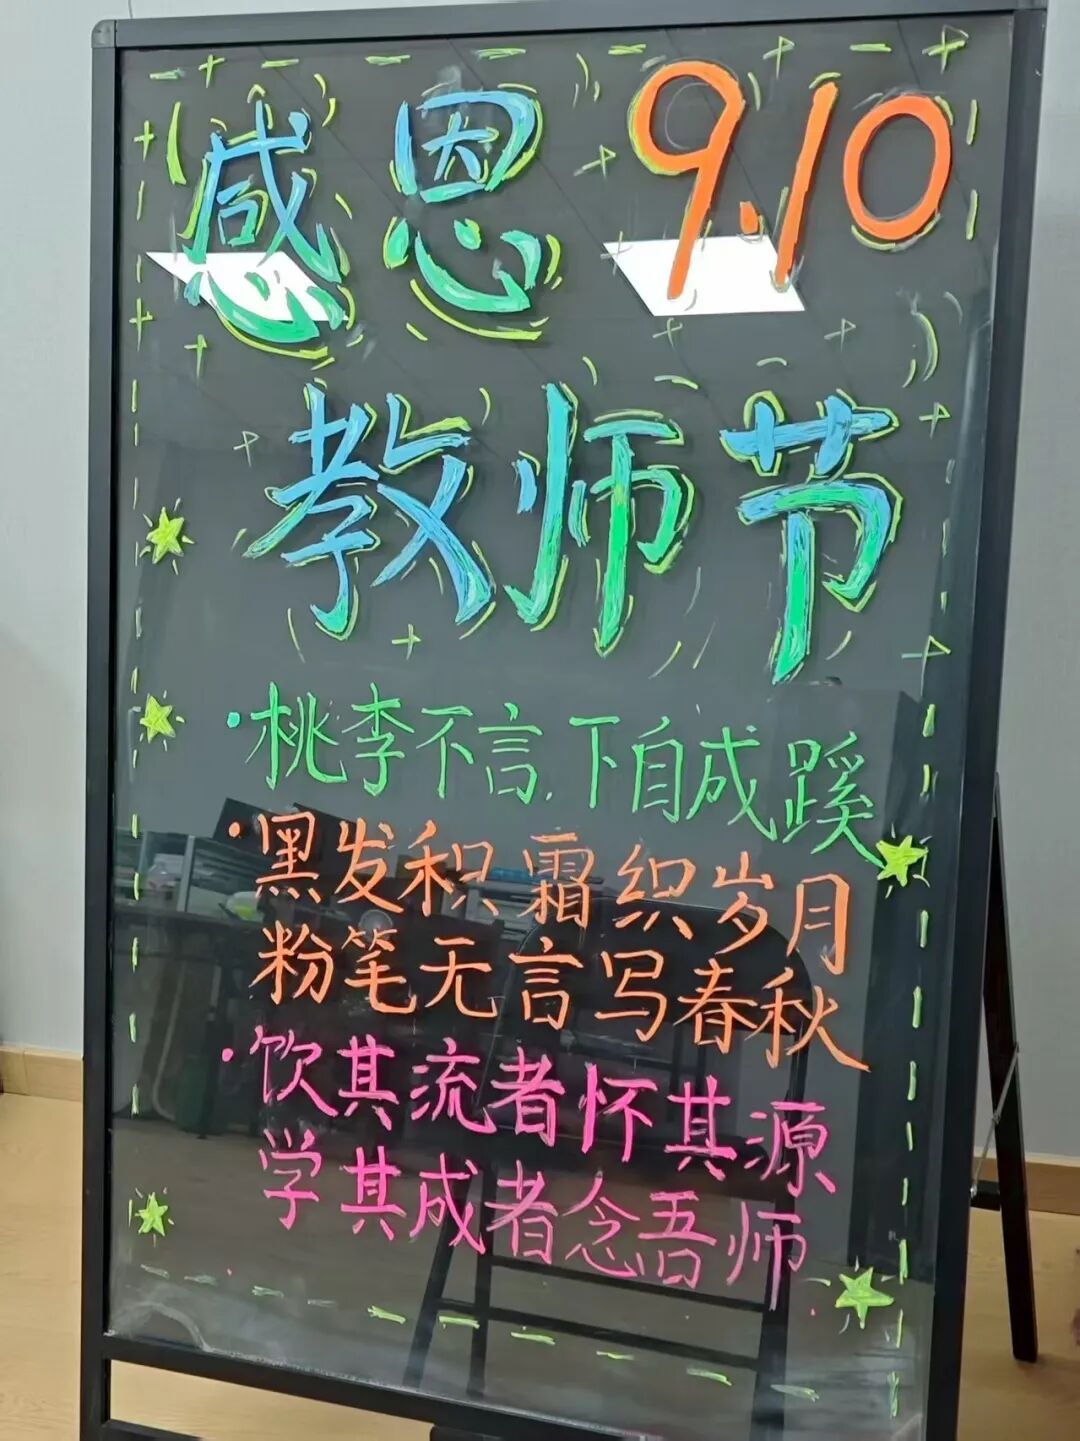 感恩 9.10
教师节
·桃李不言,下自成蹊
·黑发积霜织岁月
粉笔无言写春秋
·饮其流者怀其源
学其成者念吾师